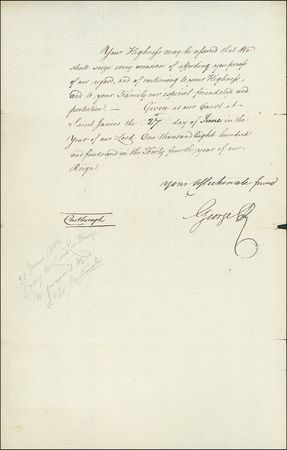 Your Highness may be assured that We
shall seize every occasion of affording you proofs
of our regard, and of continuing to your Highness,
and to your Family our especial friendship and
protection. — Given at our Court at
Saint James the 27th day of June in the
Year of our Lord One thousand Eight hundred
and four and in the Forty fourth year of our
Reign.
Your affectionate friend
George R
Castlereagh